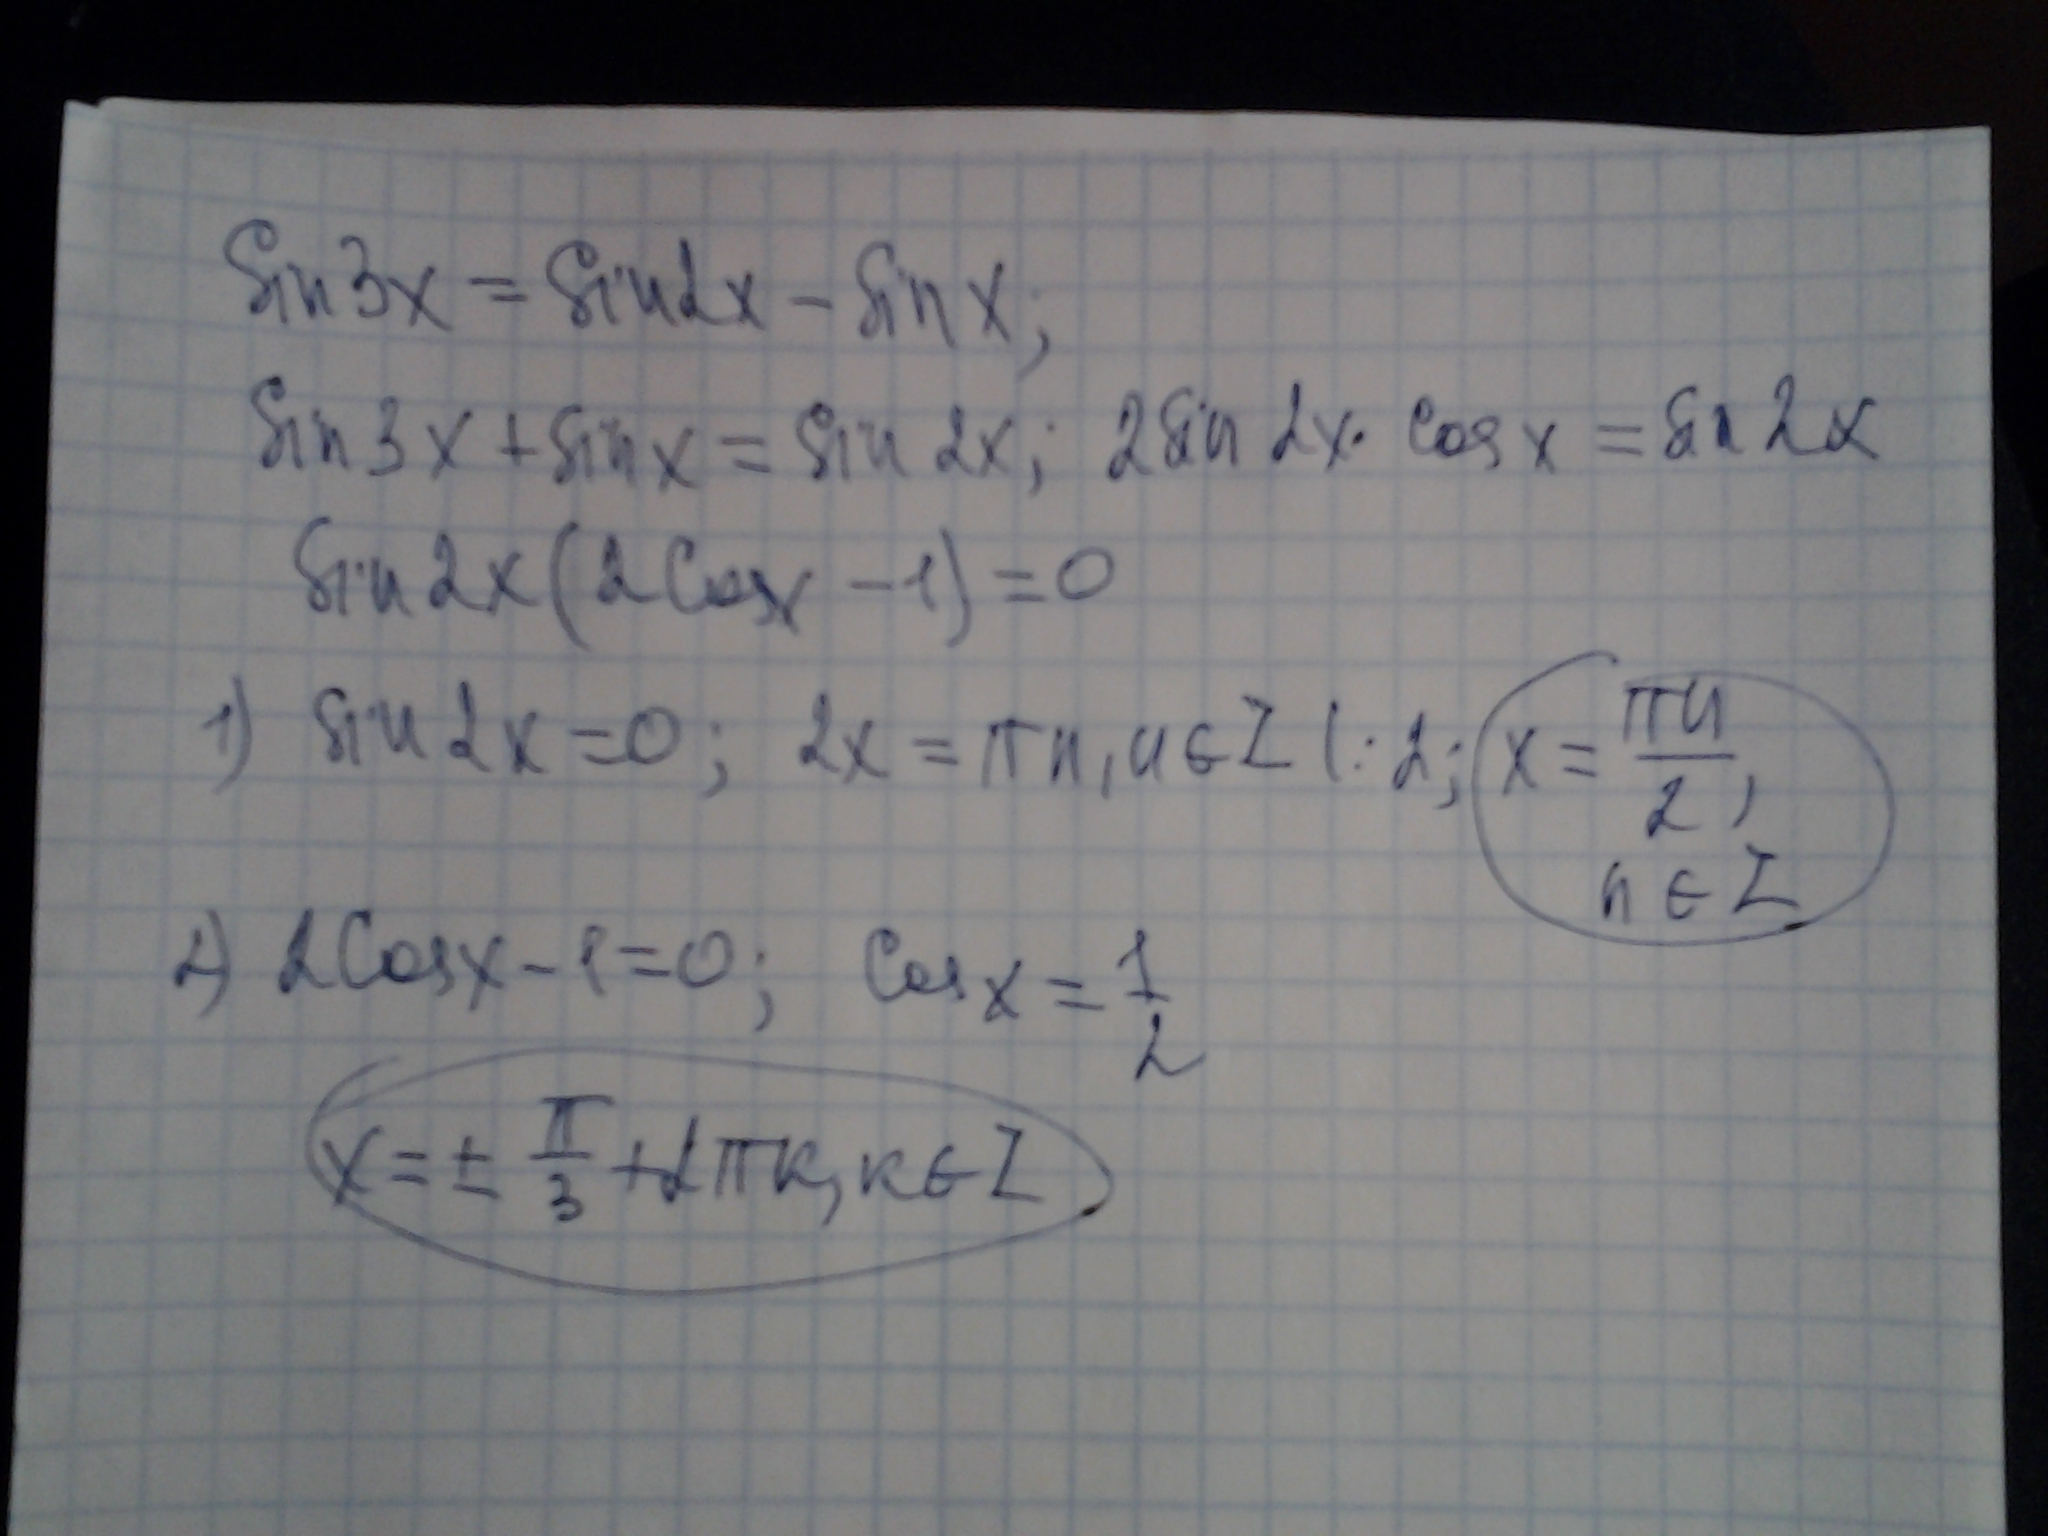 sin3x = sin2x - sinx;
sin3x + sinx = sin2x; 2sin2x · cosx = sin2x
sin2x(2cosx - 1) = 0
1) sin2x = 0; 2x = πn, n∈Z |:2; x = πn/2, n∈Z
2) 2cosx - 1 = 0; cosx = 1/2
x = ± π/3 + 2πk, k∈Z